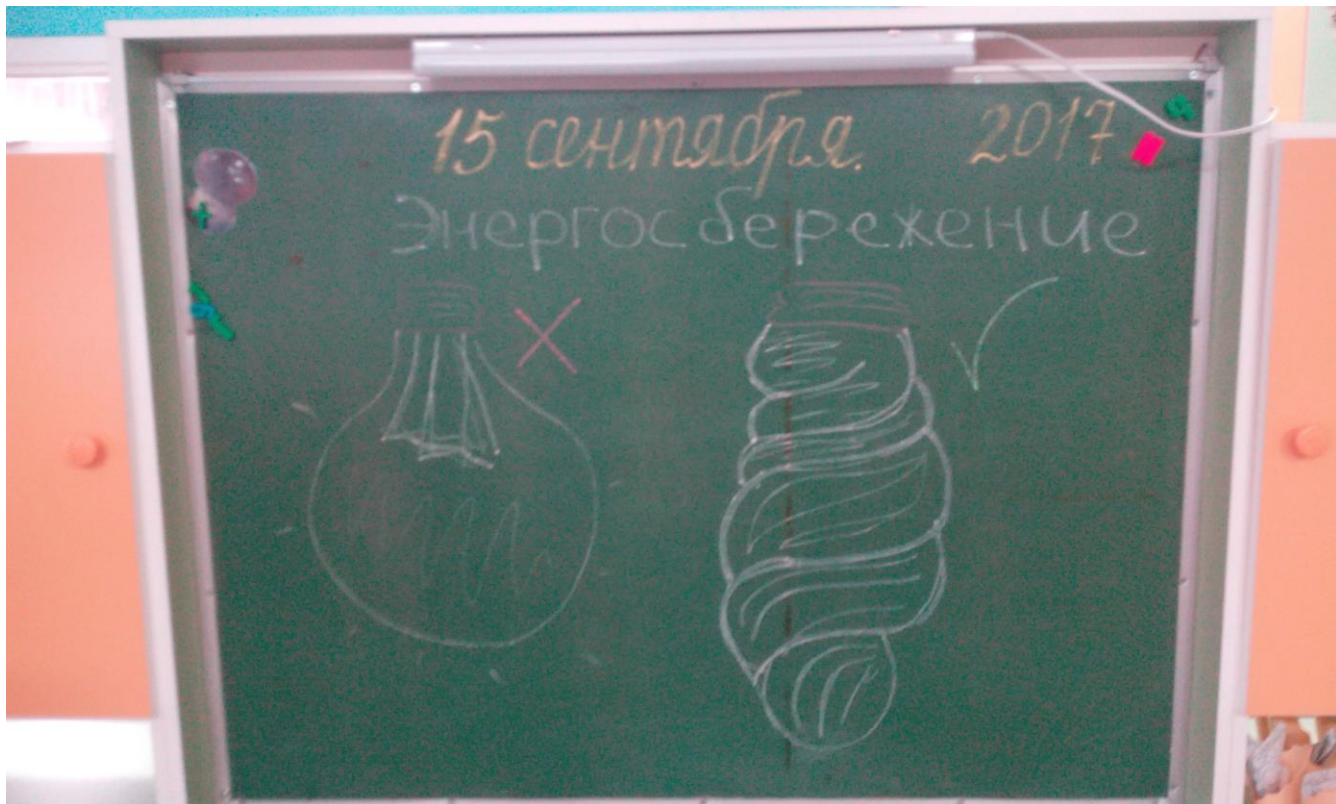 15 сентября. 2017
Энергосбережение